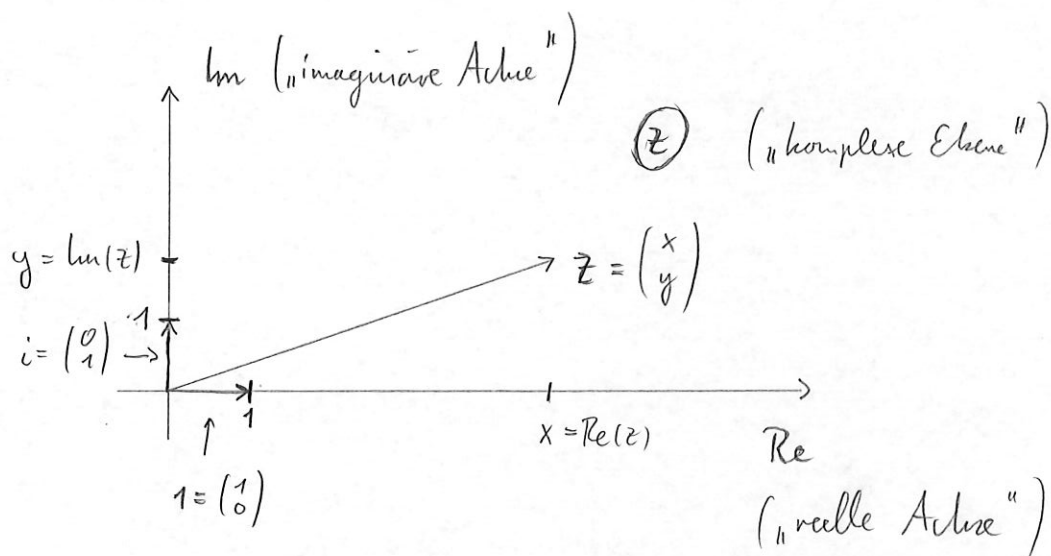 Im („imaginäre Achse")
z („komplexe Ebene")
y = Im(z)
z = (x
y)
1
i = (0
1) →
1
x = Re(z)
Re
1 = (1
0)
(„reelle Achse")